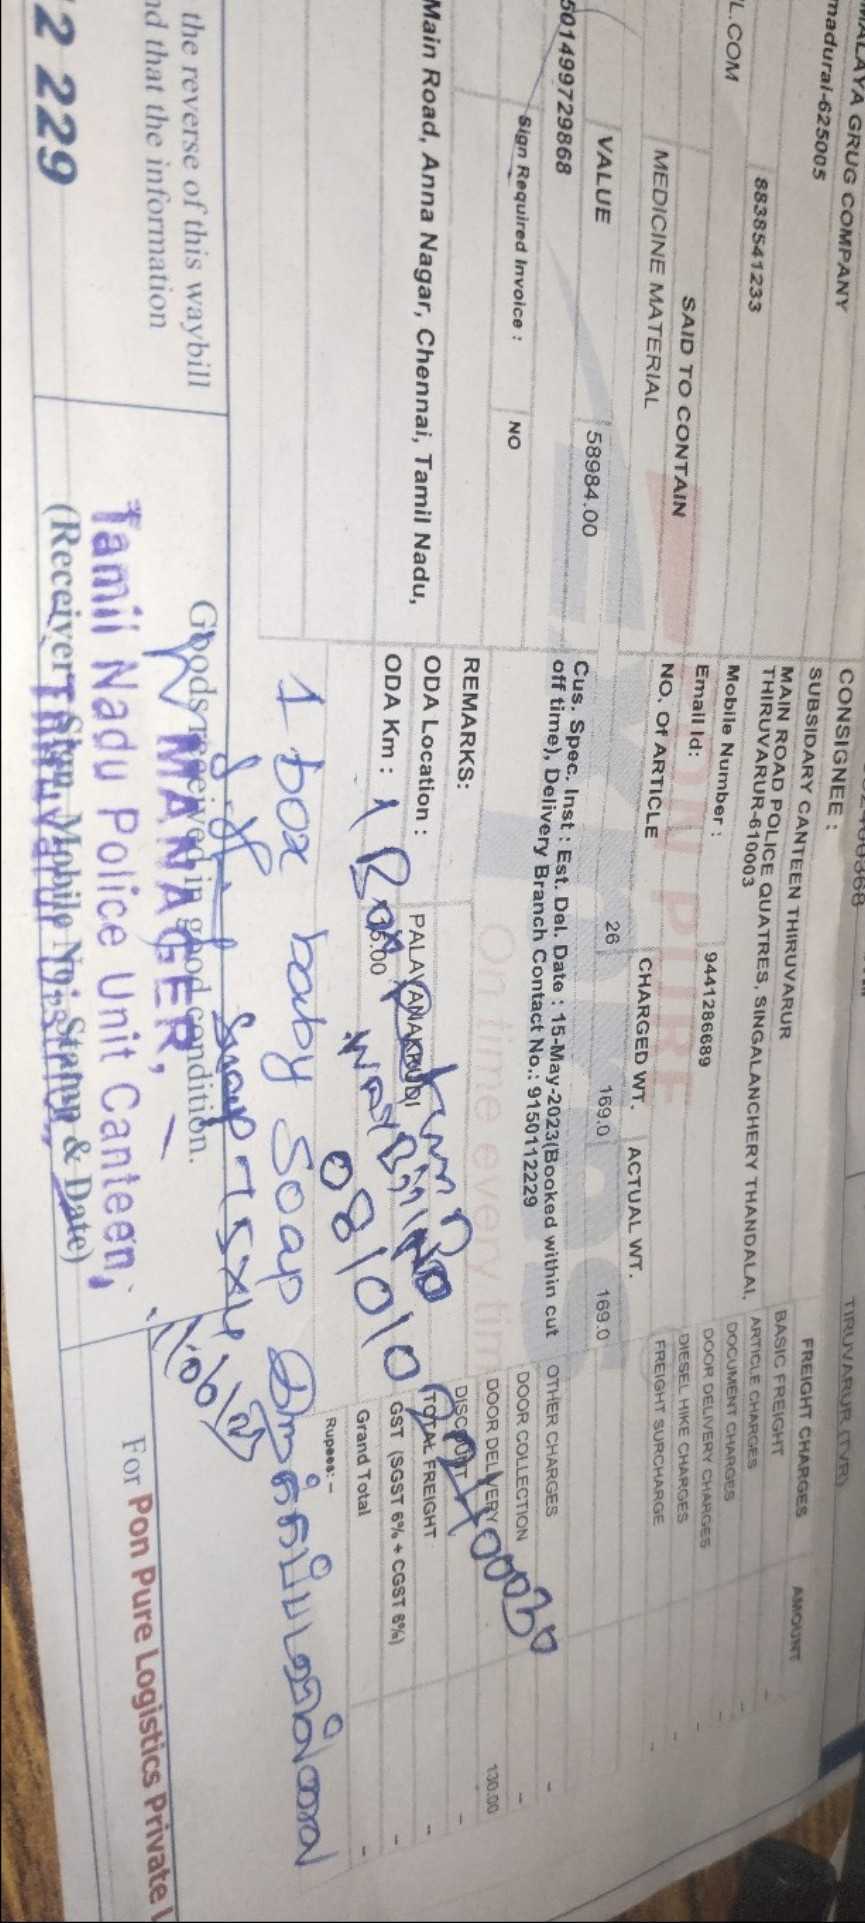 GRUG COMPANY
madurai-625005
8838541233
L.COM
SAID TO CONTAIN
MEDICINE MATERIAL
VALUE 58984.00
501499729868
Sign Required Invoice : NO
Main Road, Anna Nagar, Chennai, Tamil Nadu,
the reverse of this waybill
nd that the information
2 229
TIRUVARUR (TVR)
CONSIGNEE :
SUBSIDARY CANTEEN THIRUVARUR
MAIN ROAD POLICE QUATRES, SINGALANCHERY THANDALAI,
THIRUVARUR-610003
Mobile Number : 9441286689
Email Id:
NO. Of ARTICLE CHARGED WT. ACTUAL WT.
26 169.0 169.0
Cus. Spec. Inst : Est. Del. Date : 15-May-2023(Booked within cut
off time), Delivery Branch Contact No.: 9150112229
REMARKS:
ODA Location : PALAYANAKKUDI
ODA Km :
ON PURE
On time every tim
1 Box
08/010
1 box baby soap
Goods received in good condition.
MANAGER,
Tamil Nadu Police Unit Canteen,
(Receiver Sign, Mobile No., Stamp & Date)
FREIGHT CHARGES AMOUNT
BASIC FREIGHT -
ARTICLE CHARGES -
DOCUMENT CHARGES -
DOOR DELIVERY CHARGES -
DIESEL HIKE CHARGES -
FREIGHT SURCHARGE -
OTHER CHARGES -
DOOR COLLECTION -
DOOR DELIVERY 130.00
DISCOUNT -
TOTAL FREIGHT -
GST (SGST 6% + CGST 6%) -
Grand Total -
Rupees: -
For Pon Pure Logistics Private L